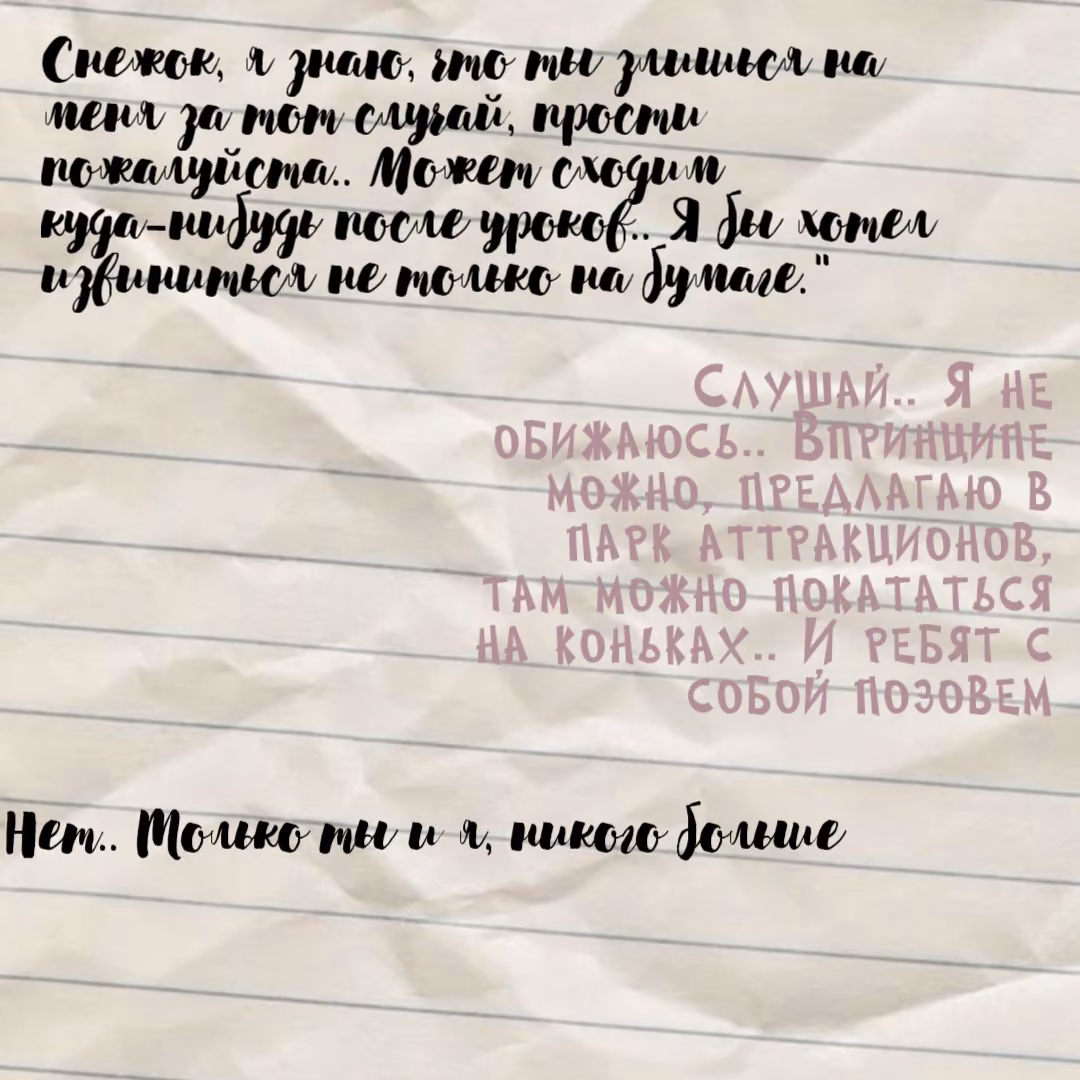 Снежок, я знаю, что ты злишься на
меня за тот случай, прости
пожалуйста.. Может сходим
куда-нибудь после уроков.. Я бы хотел
извиниться не только на бумаге."
Слушай.. Я не
обижаюсь.. Впринципе
можно, предлагаю в
парк аттракционов,
там можно покататься
на коньках.. И ребят с
собой позовем
Нет.. Только ты и я, никого больше